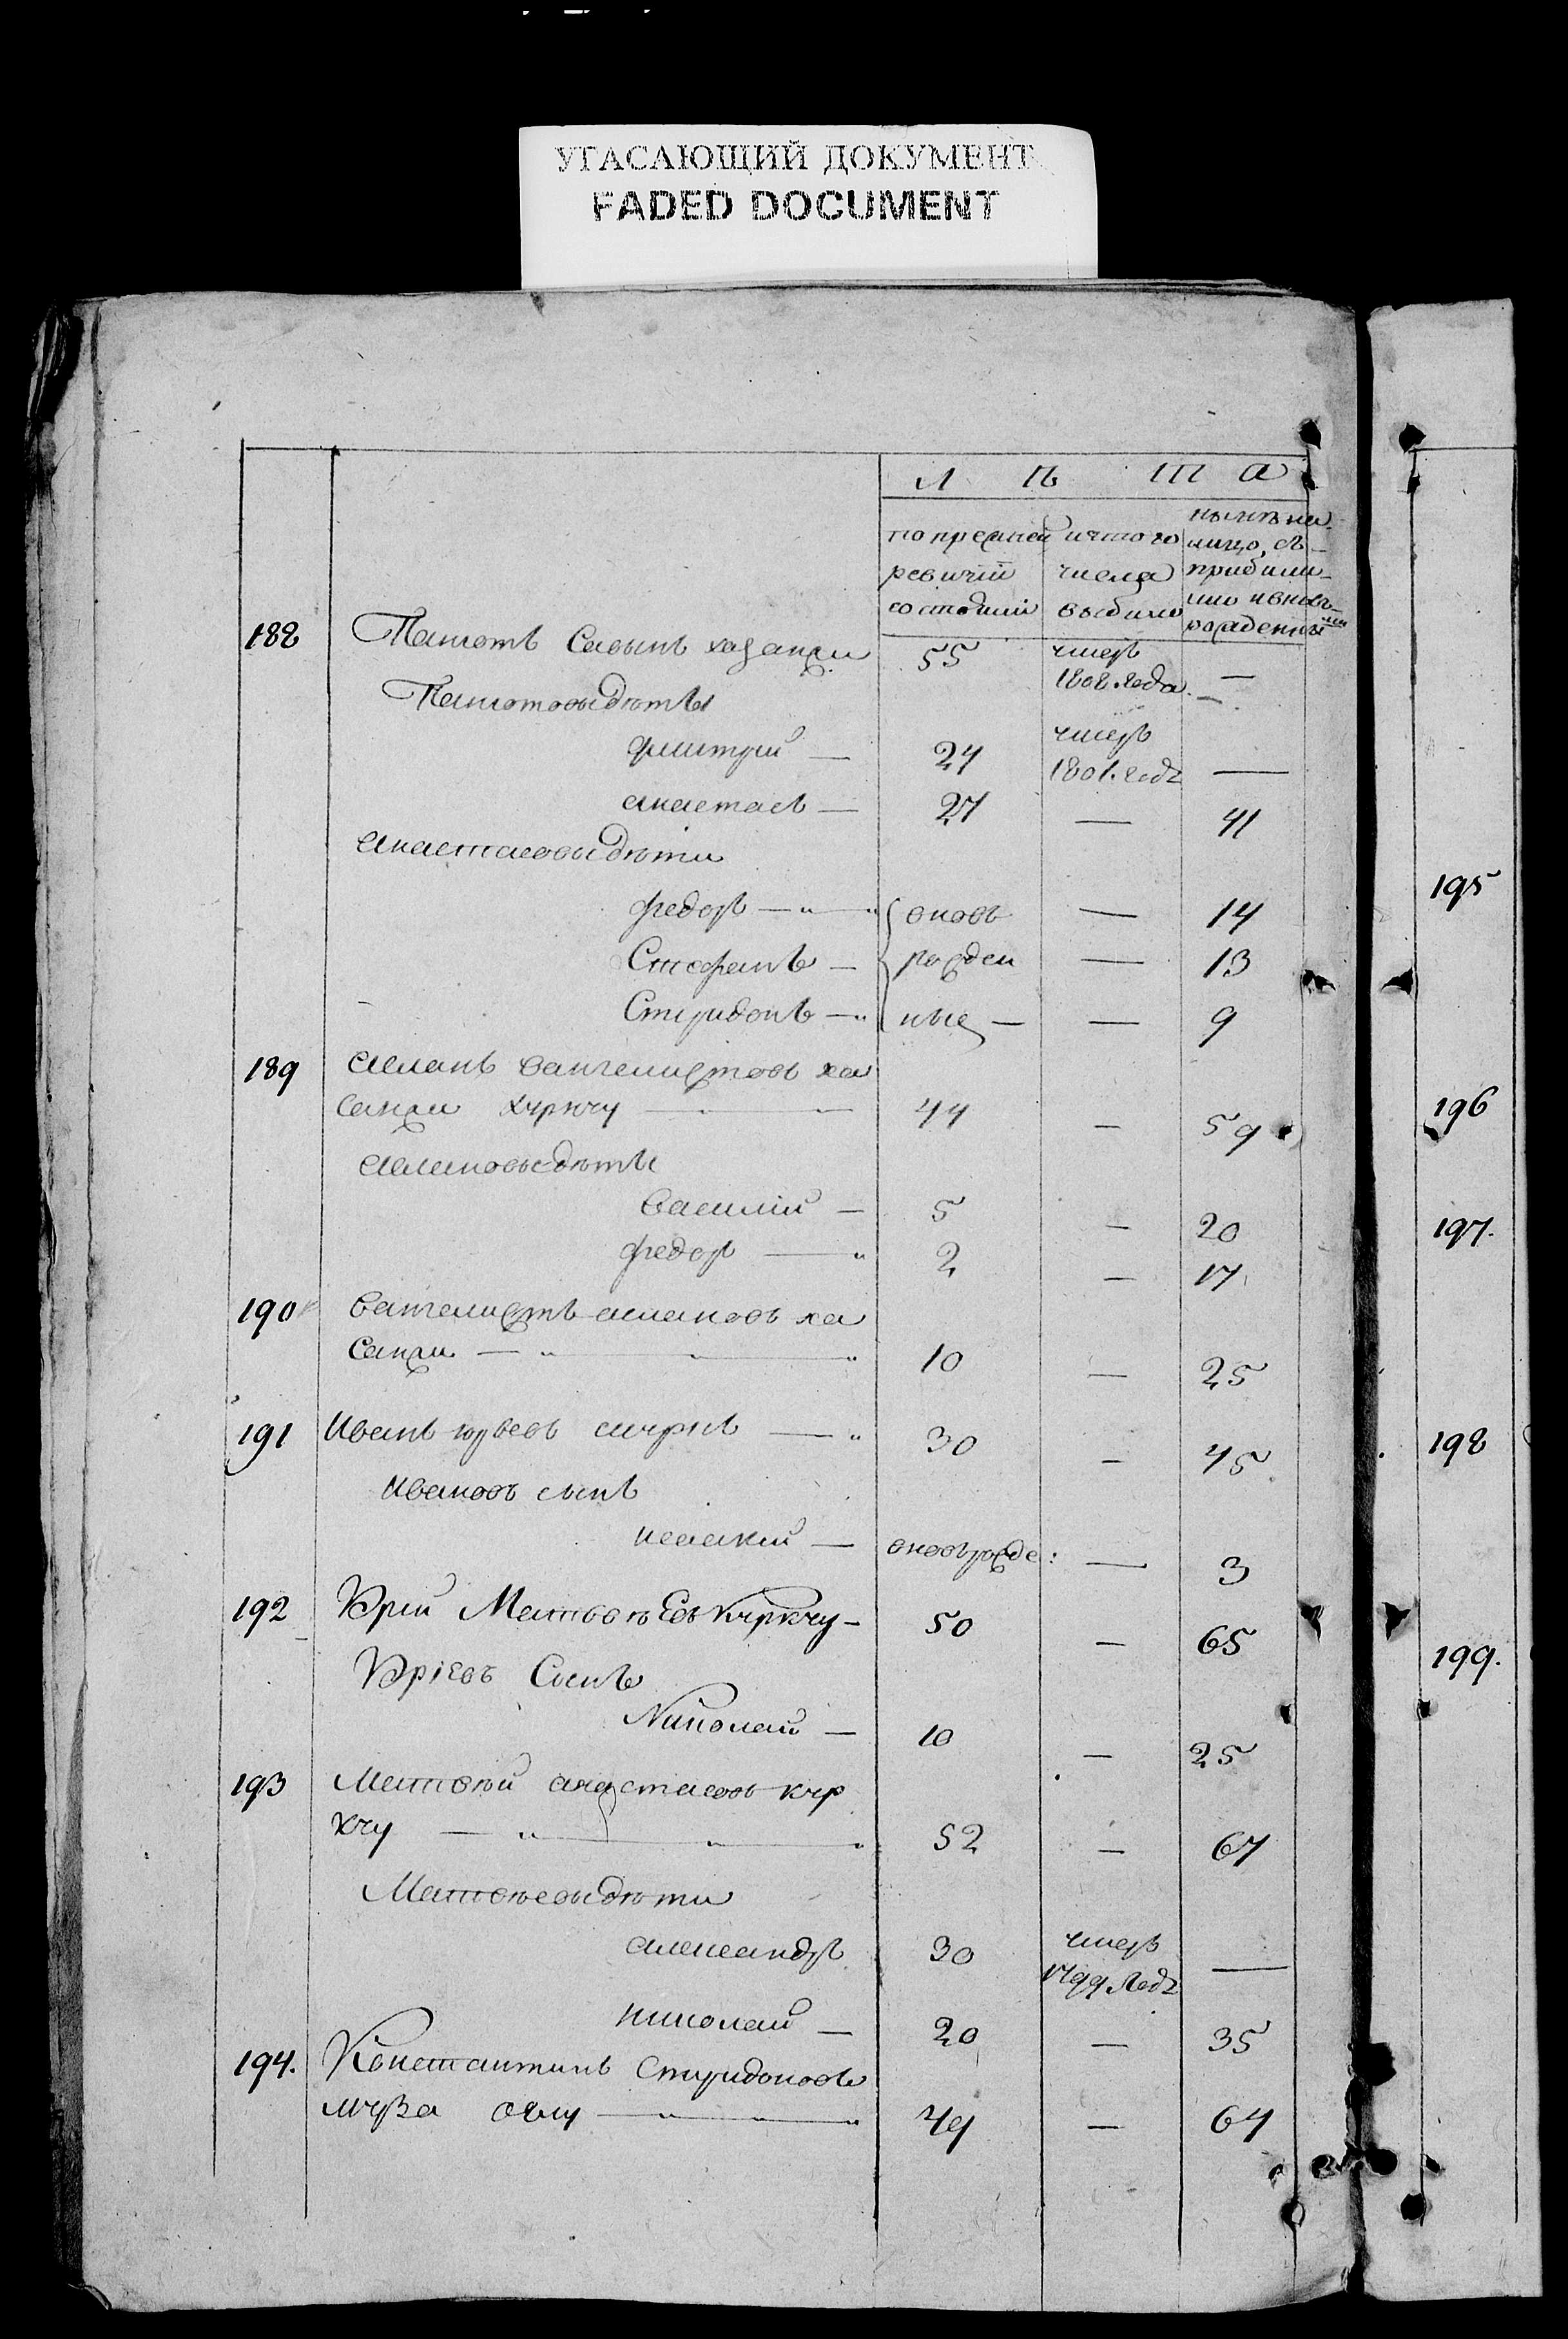 УГАСАЮЩИЙ ДОКУМЕНТ
FADED DOCUMENT
Л ѣ т а
по прежней ревизіи состояли
исъ того числа выбыло
нынѣ на лицо, съ прибылы- ми и вновь рожденны ми
188 Панаютъ Савынъ хазанжи 55 умеръ —
1808. года.
Панаютовы дѣты
Дмитрій — 24 умеръ
1801. года —
анастасъ — 27 — 41
Анастасовы дѣти
федоръ — вновь — 14
Стефанъ — рожден — 13
Спиридонъ — ные — — 9
189 Асланъ вангелистовъ ха
санжи кчркчу — 44 — 59
Аслановы дѣты
Василій — 5 — 20
федоръ — 2 — 17
190 Вангелистъ аслановъ ха
санжи — 10 — 25
191 Иванъ юрьевъ — 30 — 45
Ивановъ сынъ
исаакий — вновь рожде: — 3
192 Юрій Матвѣевъ Кчркчу — 50 — 65
Юріевъ Сынъ
Николай — 10 — 25
193 Матвѣй анастасовъ кчр
кчу — 52 — 67
Матвѣевы дѣти
александръ 30 умеръ
1799 года —
николай — 20 — 35
194. Константинъ Спиридоновъ
мчрза оглу — 49 — 64
195
196
197.
198
199.